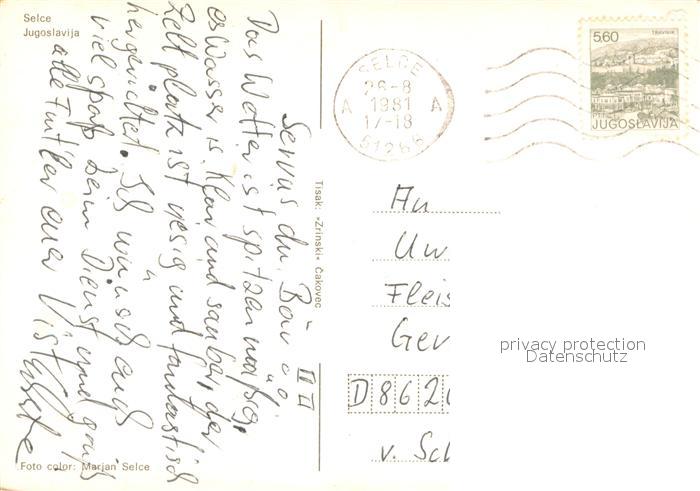 Selce
Jugoslavija
Servus du Bär
Das Wetter ist spitzenmäßig,
es Wasser is klar und sauber, der
Zeltplatz ist riesig und fantastisch
hergerichtet. Ich wünsch euch
viel spaß beim Dienst und
alle
euer
Tisak: »Zrinski« Čakovec
Foto color: Marjan Selce
SELCE
26-8
A 1981 A
17-18
51266
5,60
TRAVNIK
JUGOSLAVIJA
An
Uw
Fleis
Ger
D 8 6 2
v. Sch
privacy protection
Datenschutz